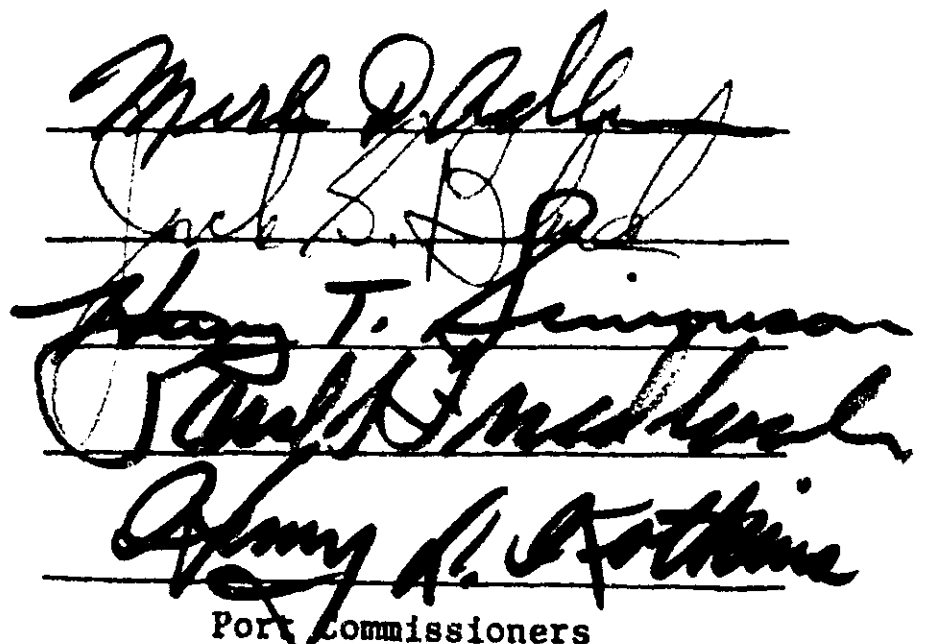 Merle D. Adlum
Jack S. Block
Henry T. Simonson
Paul S. Friedlander
Henry L. Kotkins
Port Commissioners